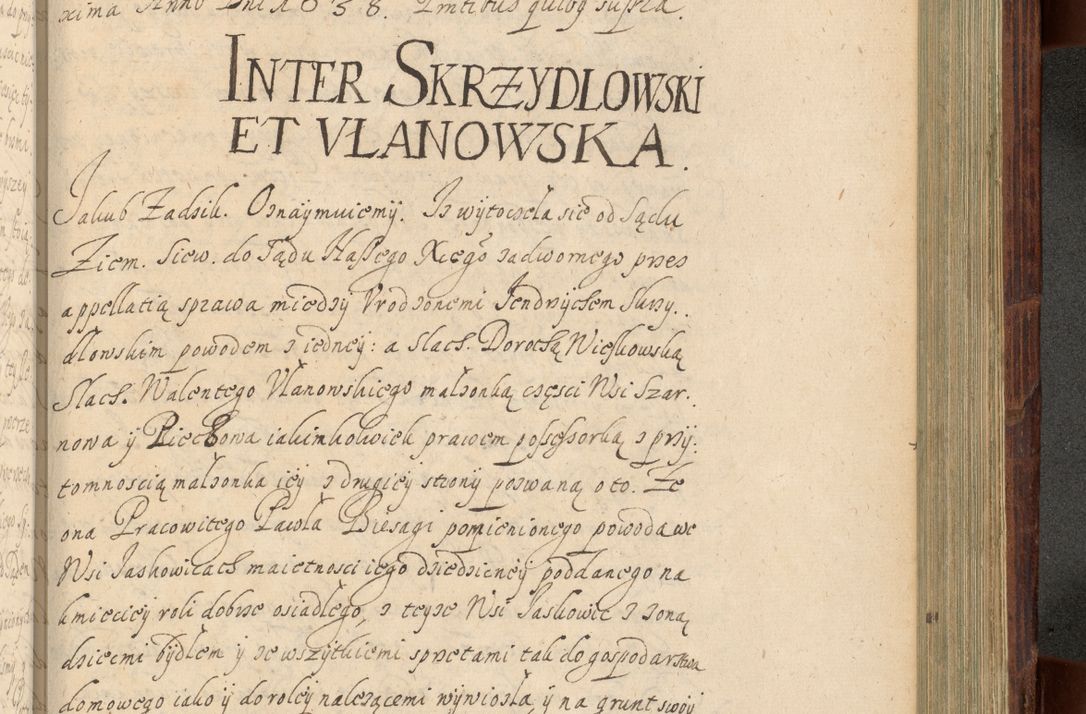 xima Anno Dni 1638. Pmtibus quibg supra.
INTER SKRZYDLOWSKI
ET VŁANOWSKA.
Jakub Zadzik. Oznaymuiemy. Iz wytoczeła się od Sądu
Ziem. Siew. do Sądu Naszego Xcego zadwornego przez
appellatią sprawa miedzy Vrodzonemi Jendrzychem Skrzy..
dlowskim powodem z iedney: a Slach. Dorothą Wieskowską
Slach. Walentego Vłanowskiego małżonką częsci Wsi Szar.
nowa ÿ Piechowa iakimkolwiek prawem possessorką z przÿ:
tomnoscią małzonka ieÿ z drugieÿ strony pozwaną o to. Ze
ona Pracowitego Pawła Biesagi pomienionego powoda we
Wsi Jaskowicach maietnosci iego dziedziczneÿ poddanego na
kmiecieÿ roli dobrze osiadłego, z teyze Wsi Jaskowic z zoną
dziecmi bydłem ÿ ze wszytkiemi sprzetami tak do gospodarstwa
domowego iako ÿ do roleÿ nalezącemi wÿwiozła ÿ na grunt swoÿ